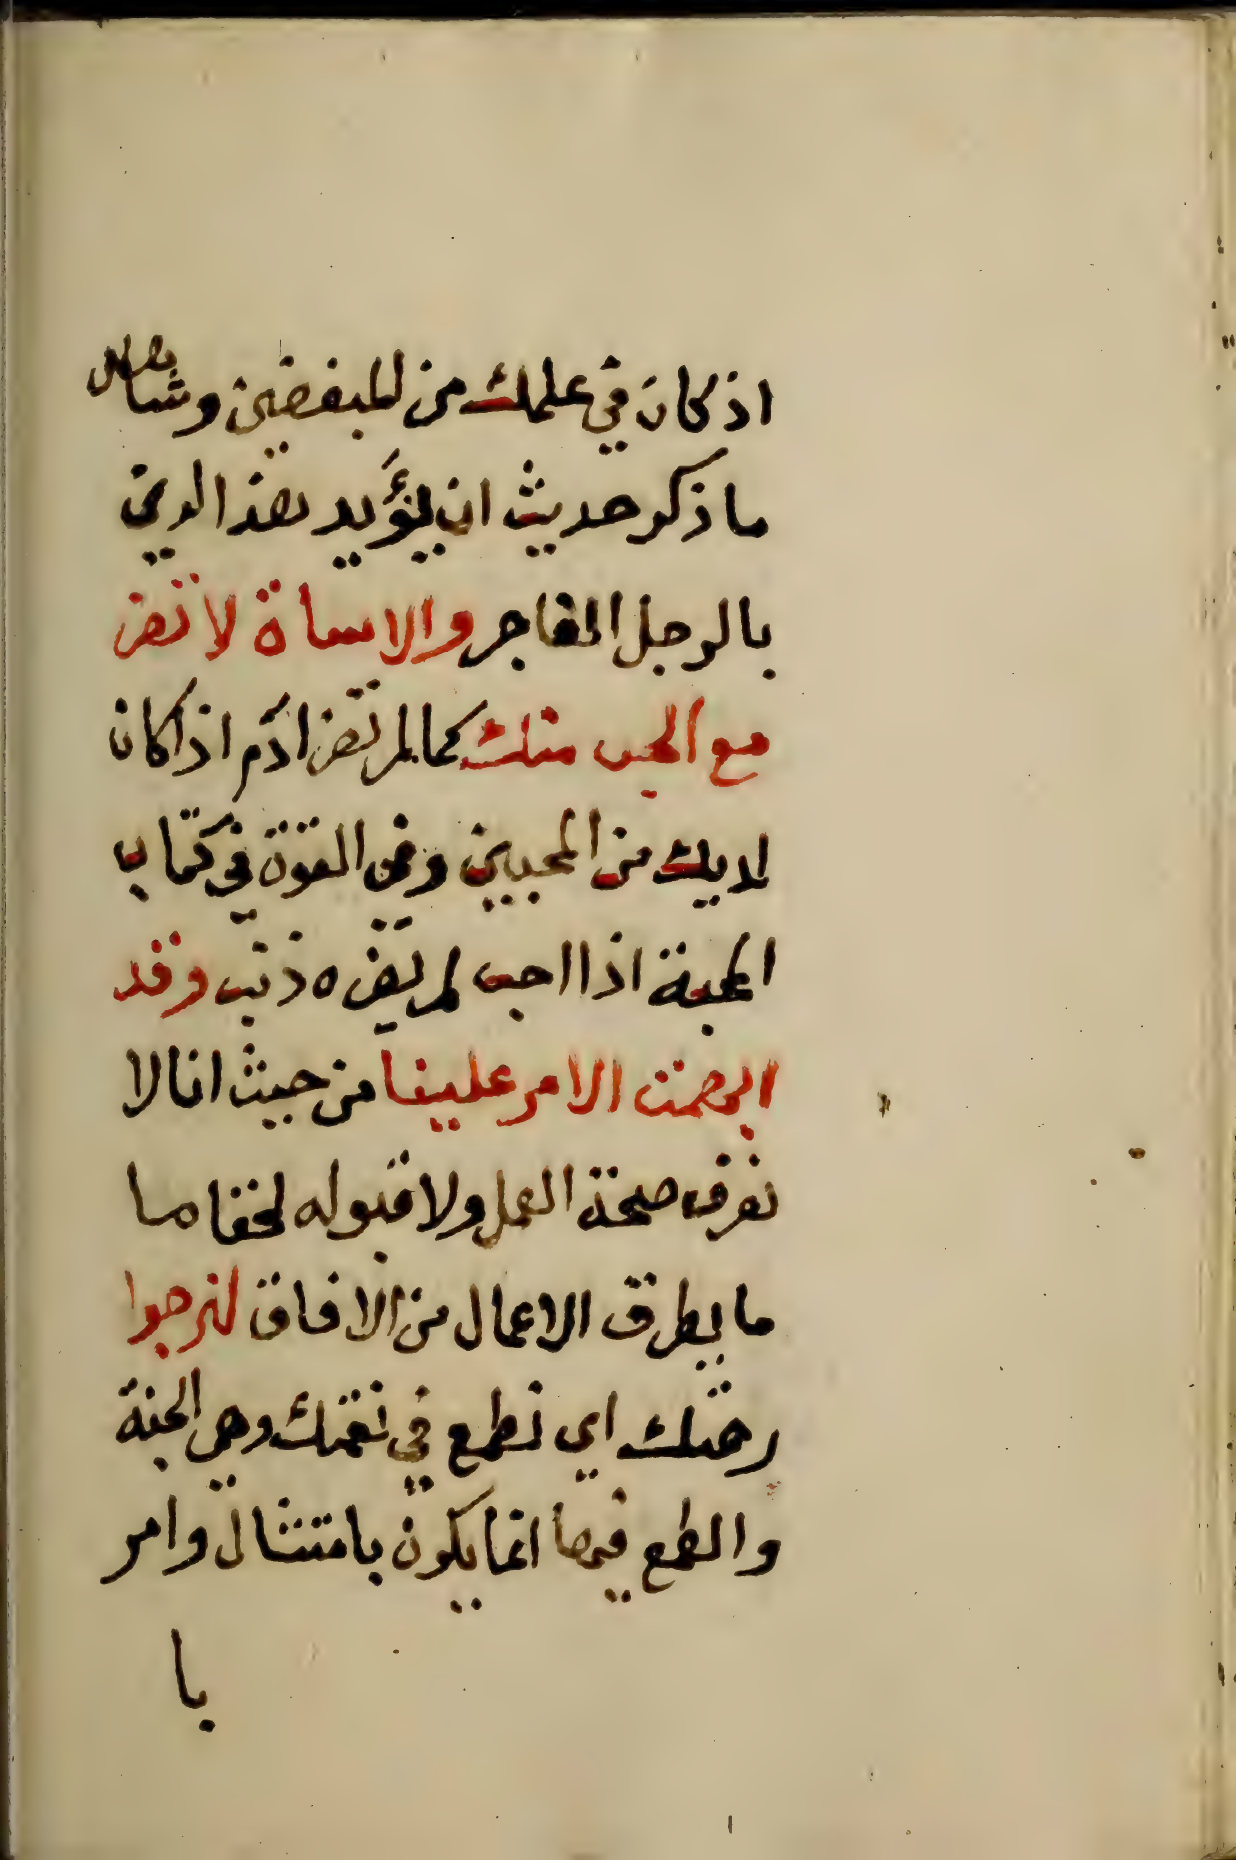 اذ كان في علمك من المبغضين وشاهد
ما ذكر حديث ان ليؤيد هذا الدين
بالرجل الفاجر والاساة لا تضر
مع الحب منك كما لم تضر ادم اذ كان
لديك من المحبين وفي القوة في كتاب
المحبة اذا احب لم يضره ذنب وقد
ابهمت الامر علينا من حيث انا لا
نعرف صحة العمل ولا قبوله لخفا ما
ما يطرق الاعمال من الافاق لنرجوا
رحمتك اي نطمع في نعمتك وهي الجنة
والطمع فيها انما يكون بامتثال وامر
با